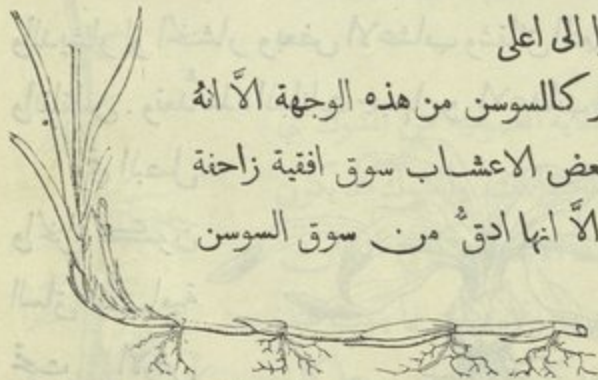 ا الى اعلى
ر كالسوسن من هذه الوجهة الاَّ انهُ
عض الاعشاب سوق افقية زاحفة
الاَّ انها ادقُّ من سوق السوسن